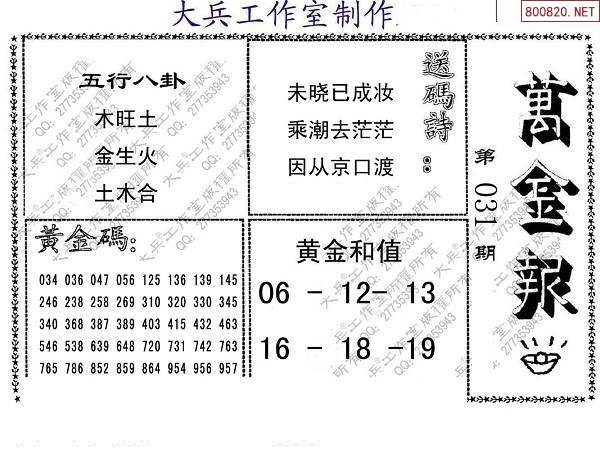 大兵工作室制作
800820.NET
萬金報
第031期
五行八卦
木旺土
金生火
土木合
送碼詩:
未晓已成妆
乘潮去茫茫
因从京口渡
黃金碼:
034 036 047 056 125 136 139 145
246 238 258 269 310 320 330 345
340 368 387 389 403 415 432 463
546 538 639 648 720 731 742 763
765 786 852 859 864 954 956 957
黄金和值
06 - 12- 13
16 - 18 -19
大兵®工作室版權所有
QQ: 277353943